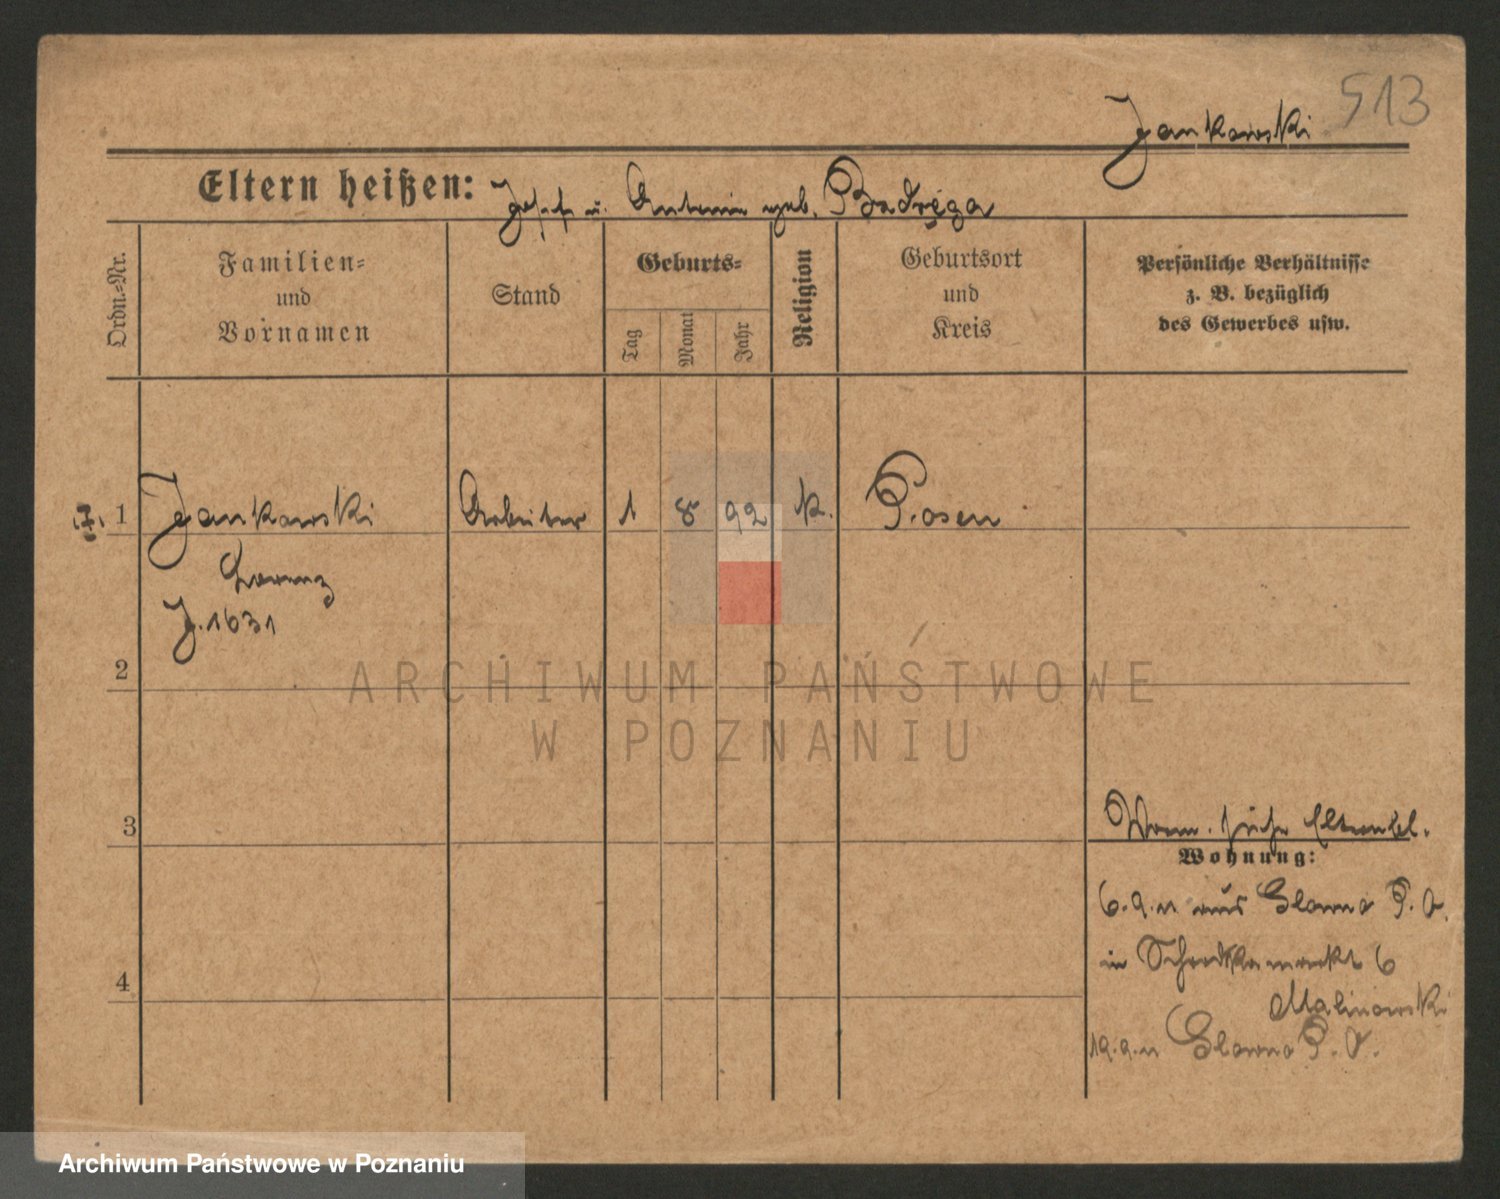 513
Jankowski
Eltern heißen: Josef u. Antonie geb. Badręga
Ordn.-Nr.
Familien-
und
Vornamen
Stand
Geburts-
Tag
Monat
Jahr
Religion
Geburtsort
und
Kreis
Persönliche Verhältnisse
z. B. bezüglich
des Gewerbes usw.
1 Jankowski Arbeiter 1 8 92 k. Posen
Lorenz
J. 1631
2
ARCHIWUM PAŃSTWOWE
W POZNANIU
3
Worm. siehe Elternbl.
Wohnung:
6.9.11 aus Glowno P. O.
in Schrodkamarkt 6
4
Malinowski
19.9.11 Glowno P. O.
Archiwum Państwowe w Poznaniu